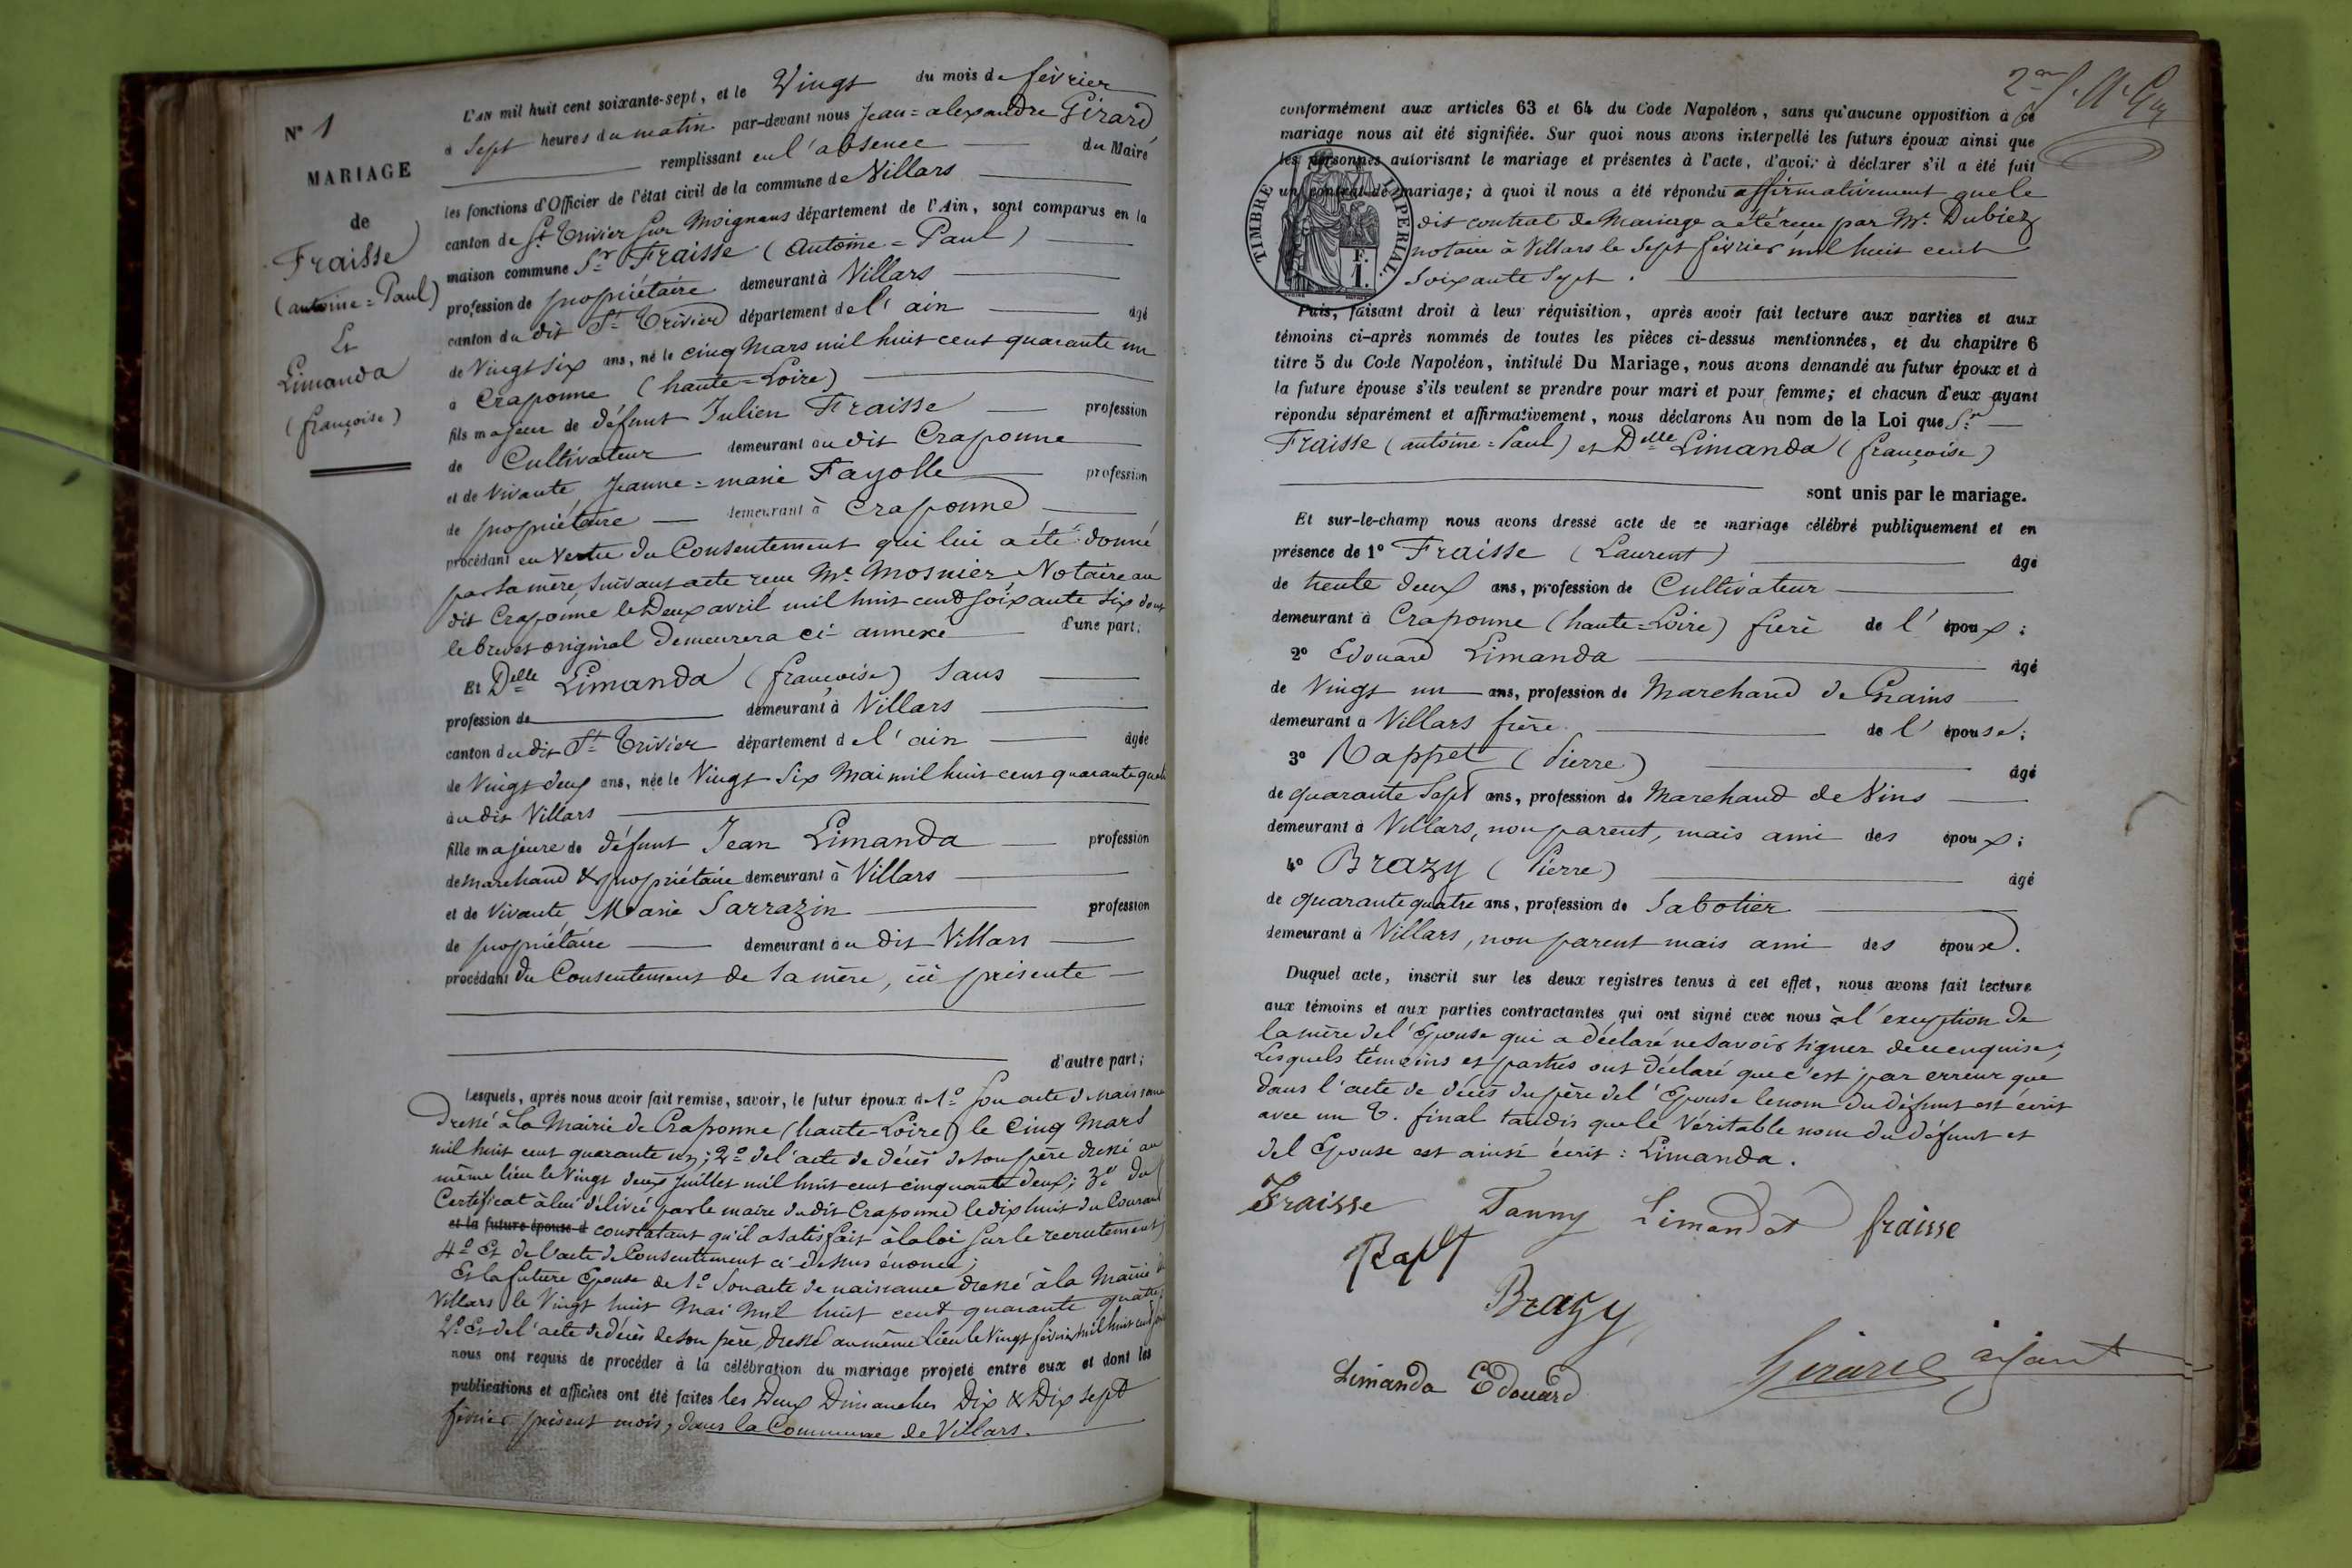 N° 1
MARIAGE
de
Fraisse
(antoine = Paul)
Et
Limanda
(françoise)
L'AN mil huit cent soixante-sept, et le Vingt du mois de février
à Sept heures du matin par-devant nous Jean = alexandre Girard
remplissant en l'absence du Maire
les fonctions d'Officier de l'état civil de la commune de Villars
canton de St Trivier sur Moignans département de l'Ain, sont comparus en la
maison commune Sr Fraisse (Antoine = Paul)
profession de propriétaire demeurant à Villars
canton du dit St Trivier département de l'ain âgé
de Vingt six ans, né le cinq Mars mil huit cent quarante un
à Craponne (haute = Loire)
fils majeur de défunt Julien Fraisse profession
de Cultivateur demeurant au dit Craponne
et de Vivante Jeanne = marie Fayolle profession
de propriétaire demeurant à Craponne
procédant en Vertu du Consentement qui lui a été donné
par sa mère, suivant acte reçu Me Mosnier, Notaire au
dit Craponne le Deux avril mil huit cent soixante six dont
le brevet original Demeurera ci-annexé d'une part;
Et Delle Limanda (françoise) Sans
profession de demeurant à Villars
canton du dit St Trivier département de l'ain âgée
de Vingt deux ans, née le Vingt Six Mai mil huit cent quarante quatre
au dit Villars
fille majeure de défunt Jean Limanda profession
de marchand & propriétaire demeurant à Villars
et de Vivante Marie Sarrazin profession
de propriétaire demeurant au dit Villars
procédant du Consentement de sa mère, ici présente
d'autre part;
Lesquels, après nous avoir fait remise, savoir, le futur époux de 1° Son acte de naissance
Dressé à la Mairie de Craponne (haute-Loire) le Cinq Mars
mil huit cent quarante un; 2° de l'acte de décès de son père dressé au
même lieu le Vingt deux Juillet mil huit cent cinquante deux; 3° du
Certificat à lui délivré par le maire du dit Craponne le dix huit du Courant
et la future épouse d constatant qu'il a satisfait à la loi sur le recrutement;
4° Et de l'acte de Consentement ci-dessus énoncé;
Et la future Epouse de 1° Son acte de naissance dressé à la Mairie de
Villars le Vingt huit Mai mil huit cent quarante quatre;
2° Et de l'acte de décès de son père, dressé au même lieu le Vingt février mil huit cent
nous ont requis de procéder à la célébration du mariage projeté entre eux et dont les
publications et affiches ont été faites les Deux Dimanches Dix & Dix sept
février présent mois, dans la Commune de Villars.
conformément aux articles 63 et 64 du Code Napoléon, sans qu'aucune opposition à ce
mariage nous ait été signifiée. Sur quoi nous avons interpellé les futurs époux ainsi que
les personnes autorisant le mariage et présentes à l'acte, d'avoir à déclarer s'il a été fait
un contrat de mariage; à quoi il nous a été répondu affirmativement que le
TIMBRE IMPERIAL. F. 1.
dit contrat de Mariage a été reçu par Me Dubiez
notaire à Villars le Sept février mil huit cent
Soixante Sept.
Puis, faisant droit à leur réquisition, après avoir fait lecture aux parties et aux
témoins ci-après nommés de toutes les pièces ci-dessus mentionnées, et du chapitre 6
titre 5 du Code Napoléon, intitulé Du Mariage, nous avons demandé au futur époux et à
la future épouse s'ils veulent se prendre pour mari et pour femme; et chacun d'eux ayant
répondu séparément et affirmativement, nous déclarons Au nom de la Loi que Sr
Fraisse (antoine = Paul) et Delle Limanda (françoise)
sont unis par le mariage.
Et sur-le-champ nous avons dressé acte de ce mariage célébré publiquement et en
présence de 1° Fraisse (Laurent) âgé
de trente deux ans, profession de Cultivateur
demeurant à Craponne (haute = Loire) frère de l'époux;
2° Edouard Limanda âgé
de Vingt un ans, profession de Marchand de Grains
demeurant à Villars frère de l'épouse;
3° Rappet (Pierre) âgé
de quarante Sept ans, profession de Marchand de Vins
demeurant à Villars, non parent, mais ami des époux;
4° Brazy (Pierre) âgé
de quarante quatre ans, profession de Sabotier
demeurant à Villars, non parent mais ami des époux.
Duquel acte, inscrit sur les deux registres tenus à cet effet, nous avons fait lecture
aux témoins et aux parties contractantes qui ont signé avec nous à l'exception de
la mère de l'Epouse qui a déclaré ne savoir signer de ce enquise;
Lesquels témoins et parties ont déclaré que c'est par erreur que
dans l'acte de décès du père de l'Epouse le nom du défunt est écrit
avec un T. final tandis que le Véritable nom du défunt et
de l'Epouse est ainsi écrit: Limanda.
Fraisse Fanny Limandat fraisse
Brazy
Limanda Edouard Girard adjoint